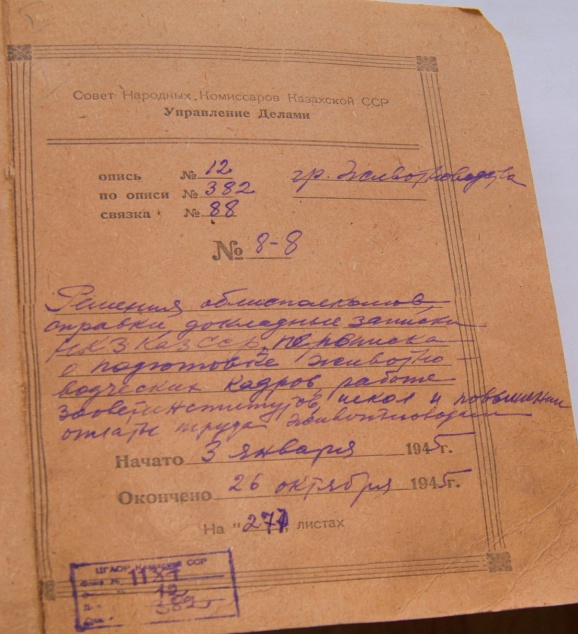 Совет Народных Комиссаров Казахской ССР
Управление Делами
опись № 12
гр. Животноводства
по описи № 382
связка № 88
№ 8-8
Решения облисполкомов,
справки, докладные записки
НКЗ КазССР, переписка
о подготовке животно-
водческих кадров, работе
зооветинститутов, школ и повышении
оплаты труда животноводам
Начато 3 января 1945 г.
Окончено 26 октября 1945 г.
На "271" листах
ЦГАОР Казахской ССР
1137
12
382